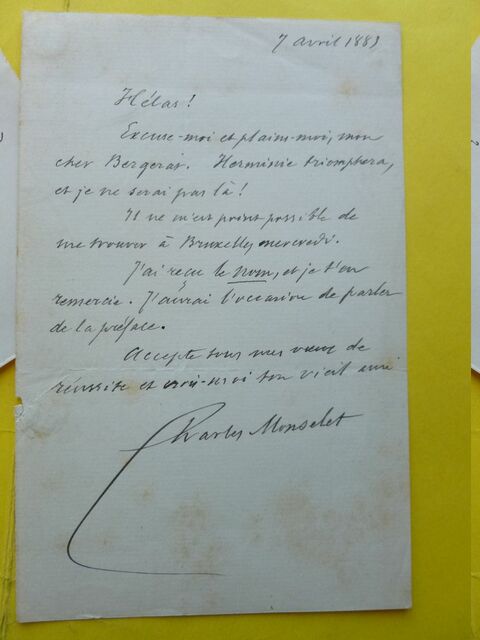 7 avril 1883
Hélas!
Excuse-moi et plains-moi, mon
cher Bergerat. Herminie triomphera,
et je ne serai pas là!
Il ne m'est point possible de
me trouver à Bruxelles mercredi.
J'ai reçu le nom, et je t'en
remercie. J'aurai l'occasion de parler
de la préface.
Accepte tous mes vœux de
réussite et crois-moi ton vieil ami
Charles Monselet